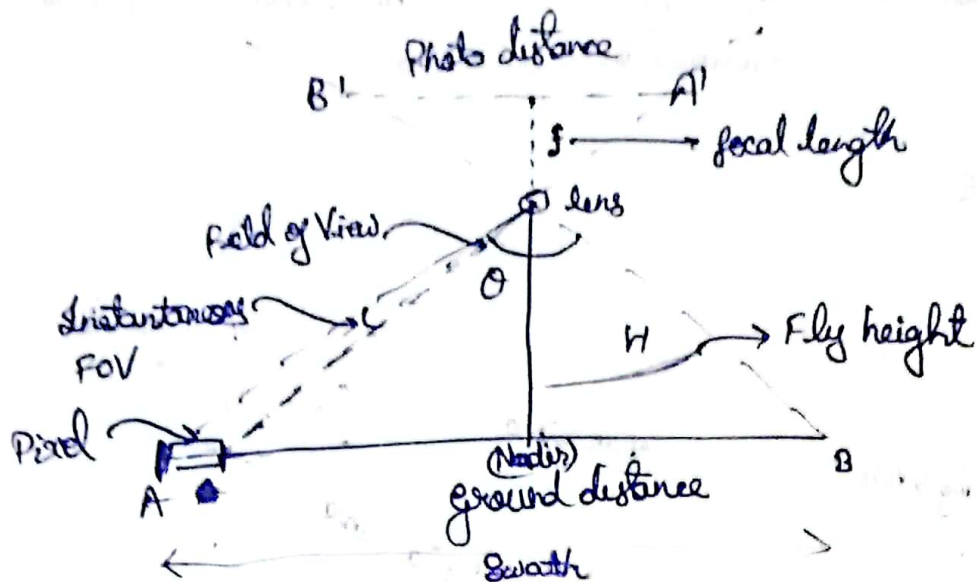 Photo distance
B' A'
f focal length
lens
Field of View
θ
Instantaneous
FOV
H Fly height
Pixel
(Nadir)
A B
Ground distance
Swath